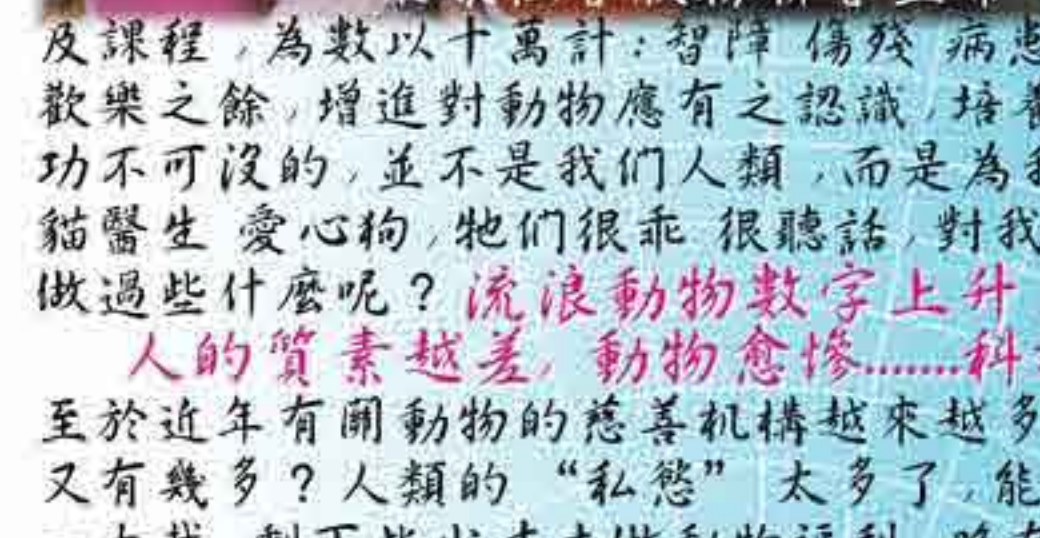 及課程，為數以十萬計：智障 傷殘 病患
歡樂之餘，增進對動物應有之認識，培養
功不可沒的，並不是我们人類，而是為我
貓醫生 愛心狗，牠们很乖 很聽話，對我
做過些什麼呢？流浪動物數字上升
人的質素越差，動物愈慘.......科
至於近年有關動物的慈善机構越來越多
又有幾多？人類的“私慾”太多了，能